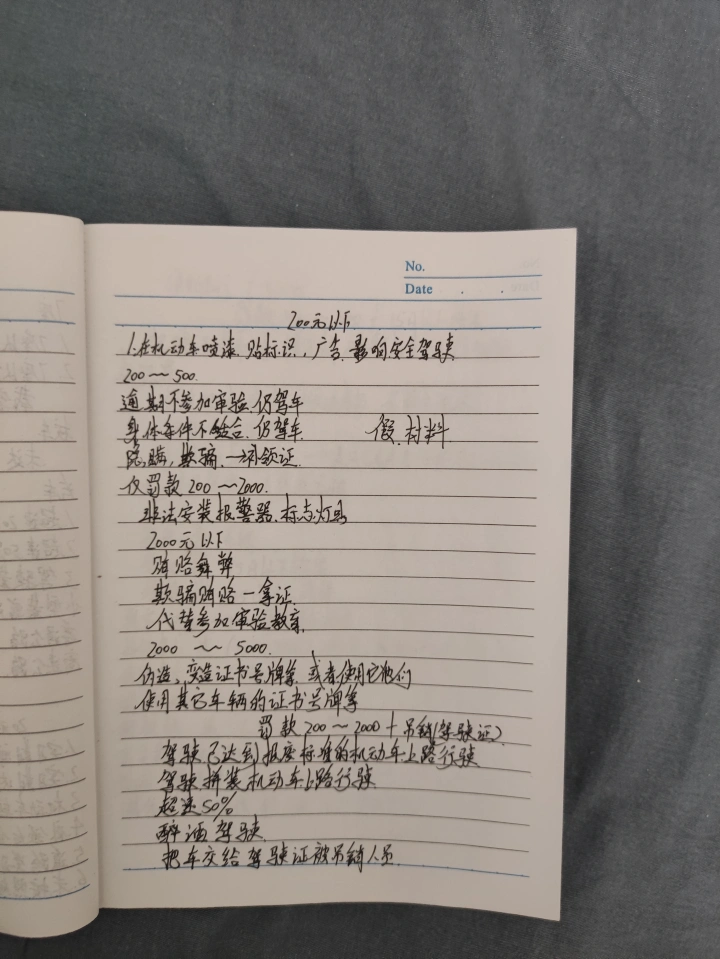 No.
Date
200元以下
1.在机动车喷漆.贴标识，广告.影响安全驾驶
200～500.
逾期不参加审验.仍驾车
身体条件不适合.仍驾车. 假.材料
隐瞒，欺骗.一补领证
仅罚款200～2000.
非法安装报警器.标志灯具
2000元以下
贿赂舞弊
欺骗贿赂一拿证.
代替参加审验教育.
2000 ～ 5000.
伪造、变造证书号牌等.或者使用它们
使用其它车辆的证书号牌等
罚款200～2000+吊销(驾驶证)
驾驶已达到报废标准的机动车上路行驶
驾驶拼装机动车上路行驶
超速50%
醉酒驾驶.
把车交给驾驶证被吊销人员.